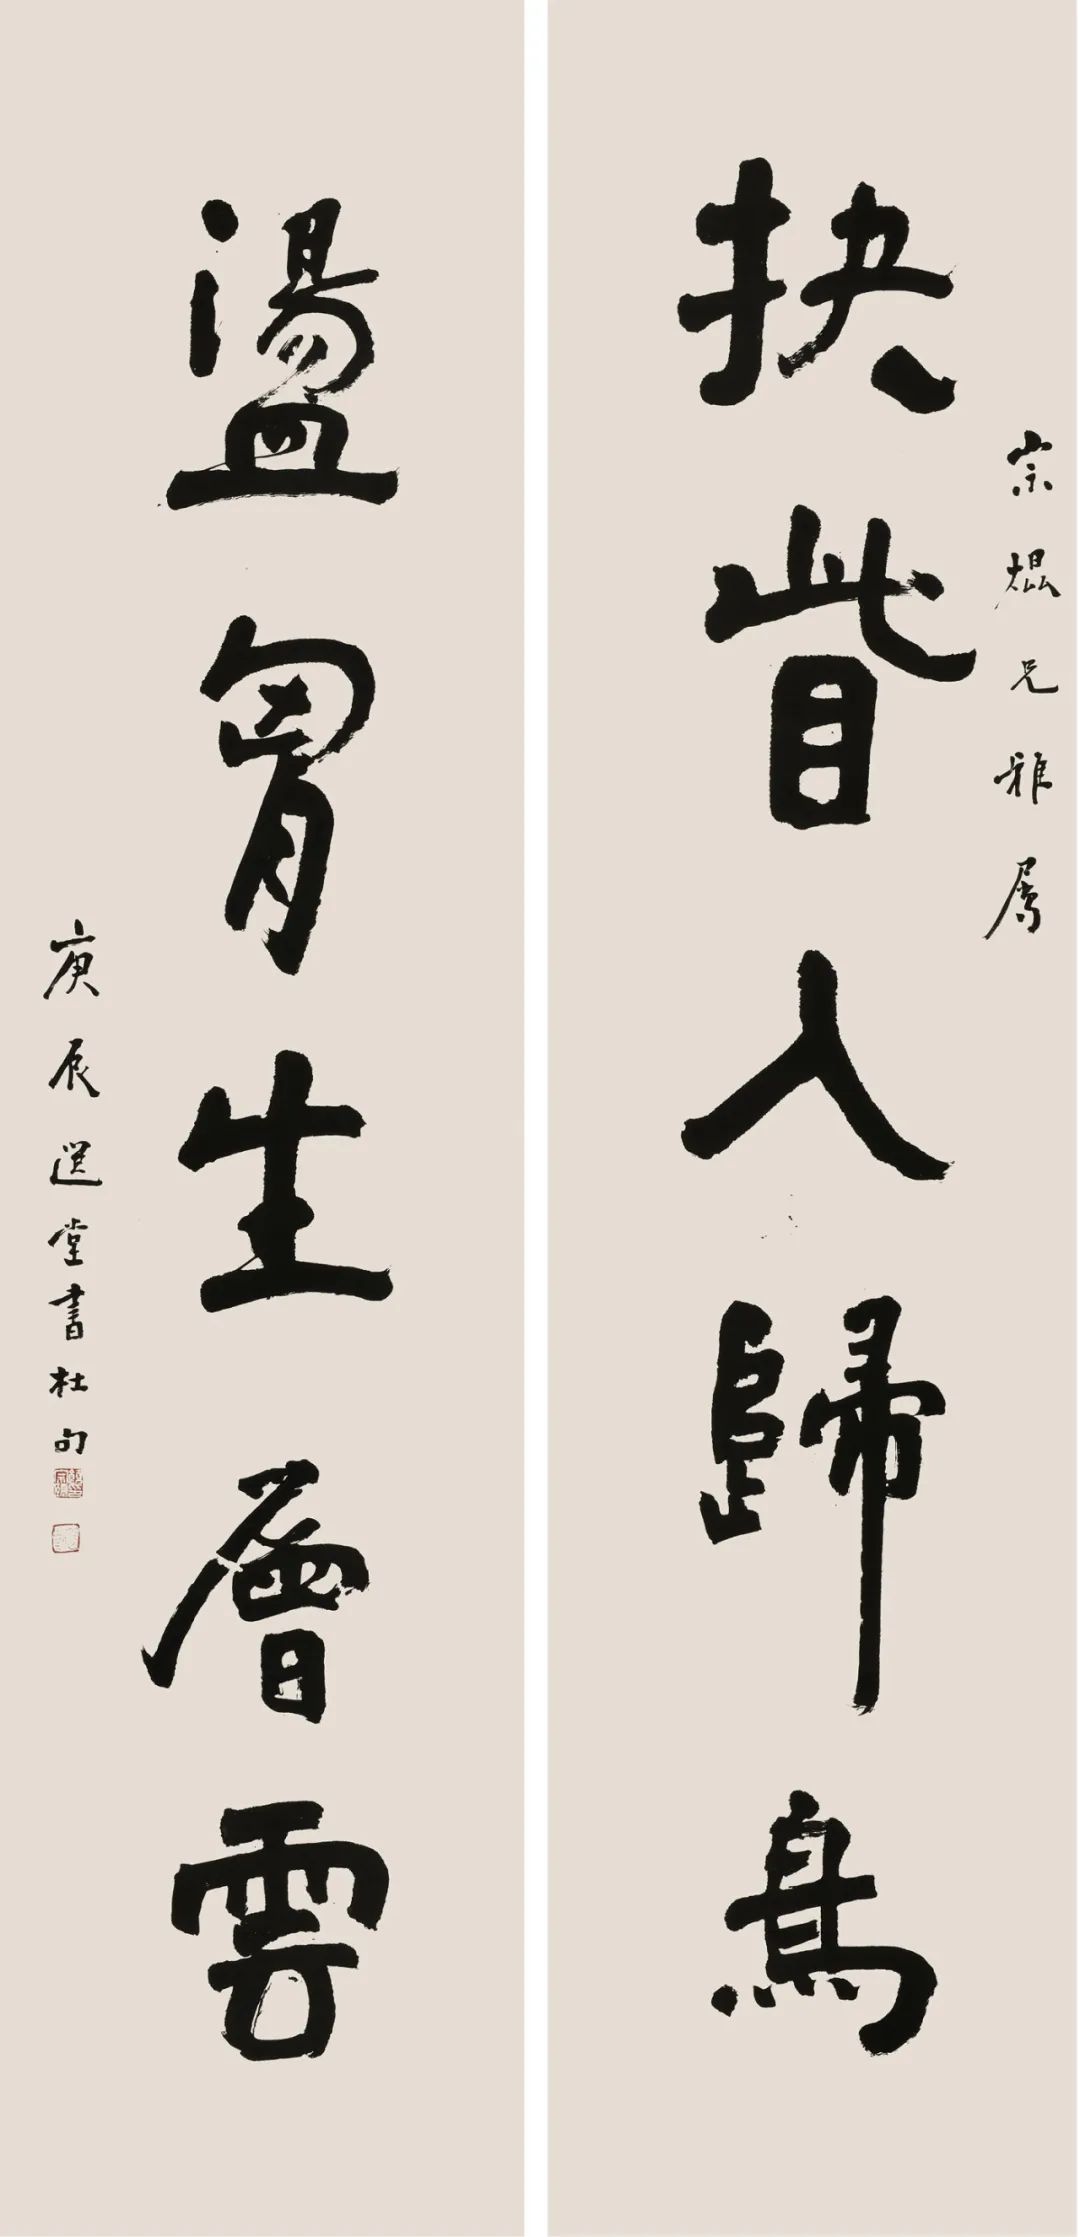 宗焜兄雅屬
抉眥入歸鳥
盪胷生層雲
庚辰選堂書杜句